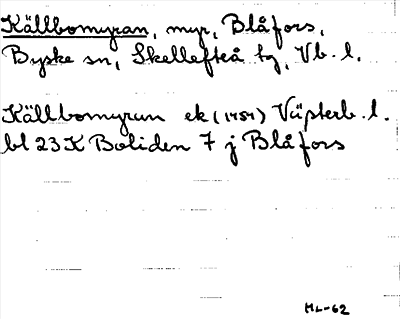 Källbomyran, myr, Blåfors,
Byske sn, Skellefteå tg, Vb. l.
Källbomyran ek (1959) Västerb. l.
bl 23 K Boliden 7 j Blåfors
ML-62